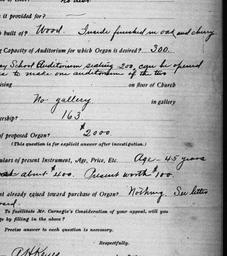 is it provided for?
built of? Wood. Inside finished in oak and cherry
Capacity of Auditorium for which Organ is desired? 300.
School Auditorium seating 200, can be opened
to make one auditorium of the two
on floor of Church
No gallery in gallery
ership? 163
of proposed Organ? $2000
(This question is for explicit answer after investigation.)
ulars of present Instrument, Age, Price, Etc. Age - 45 years
about $400. Present worth $100.
nt already raised toward purchase of Organ? Nothing. See letter
To facilitate Mr. Carnegie's Consideration of your appeal, will you
by filling in the above?
Precise answer to each question is necessary.
Respectfully,